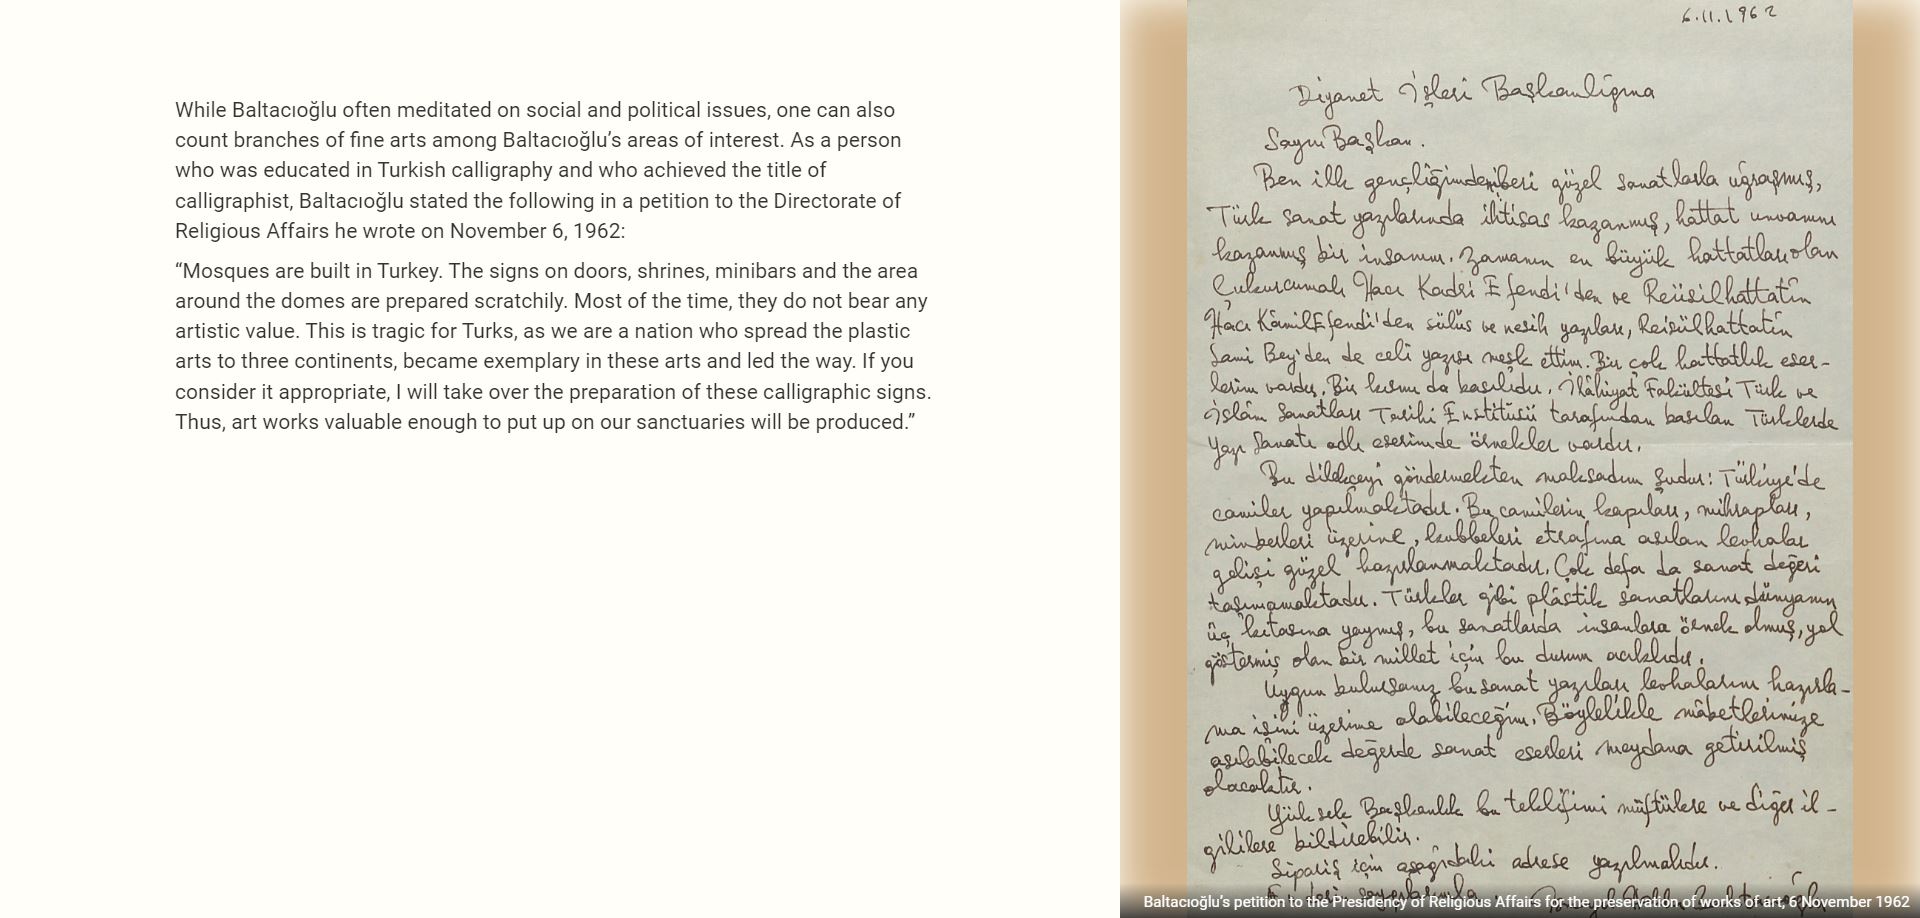 While Baltacıoğlu often meditated on social and political issues, one can also
count branches of fine arts among Baltacıoğlu’s areas of interest. As a person
who was educated in Turkish calligraphy and who achieved the title of
calligraphist, Baltacıoğlu stated the following in a petition to the Directorate of
Religious Affairs he wrote on November 6, 1962:
“Mosques are built in Turkey. The signs on doors, shrines, minibars and the area
around the domes are prepared scratchily. Most of the time, they do not bear any
artistic value. This is tragic for Turks, as we are a nation who spread the plastic
arts to three continents, became exemplary in these arts and led the way. If you
consider it appropriate, I will take over the preparation of these calligraphic signs.
Thus, art works valuable enough to put up on our sanctuaries will be produced.”
6.11.1962
Diyanet İşleri Başkanlığına
Sayın Başkan.
Ben ilk gençliğimdenberi güzel sanatlarla uğraşmış,
Türk sanat yazılarında ihtisas kazanmış, hattat unvanını
kazanmış bir insanım. Zamanın en büyük hattatları olan
Çukurcumalı Hacı Kadri Efendi'den ve Reüsilhattatîn
Hacı Kâmil Efendi'den sülüs ve nesih yazıları, Reisülhattatîn
Sami Bey'den de celi yazısı meşk ettim. Bir çok hattatlık eser-
lerim vardır. Bir kısmı da basılıdır. İlâhiyat Fakültesi Türk ve
İslâm Sanatları Tarihi Enstitüsü tarafından basılan Türklerde
Yazı Sanatı adlı eserimde örnekler vardır.
Bu dilekçeyi göndermekten maksadım şudur: Türkiye'de
camiler yapılmaktadır. Bu camilerin kapıları, mihrapları,
minberleri üzerine, kubbeleri etrafına asılan levhalar
gelişi güzel hazırlanmaktadır. Çok defa da sanat değeri
taşımamaktadır. Türkler gibi plâstik sanatlarını dünyanın
üç kıtasına yaymış, bu sanatlarda insanlara örnek olmuş, yol
göstermiş olan bir millet için bu durum acıklıdır.
Uygun bulursanız bu sanat yazıları levhalarını hazırla-
ma işini üzerime alabileceğim. Böylelikle mâbetlerimize
asılabilecek değerde sanat eserleri meydana getirilmiş
olacaktır.
Yüksek Başkanlık bu teklifimi müftülere ve diğer il-
gililere bildirebilir.
Sipariş için aşağıdaki adrese yazılmalıdır.
Baltacıoğlu’s petition to the Presidency of Religious Affairs for the preservation of works of art, 6 November 1962